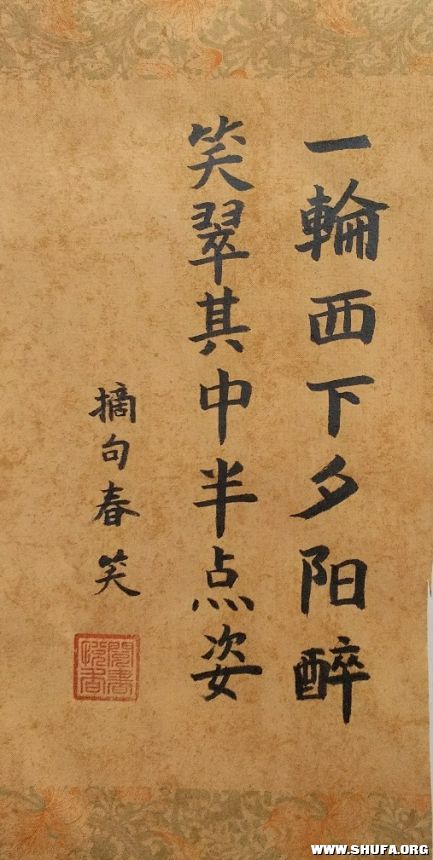 一輪西下夕阳醉
笑翠其中半点姿
摘句春笑
WWW.SHUFA.ORG